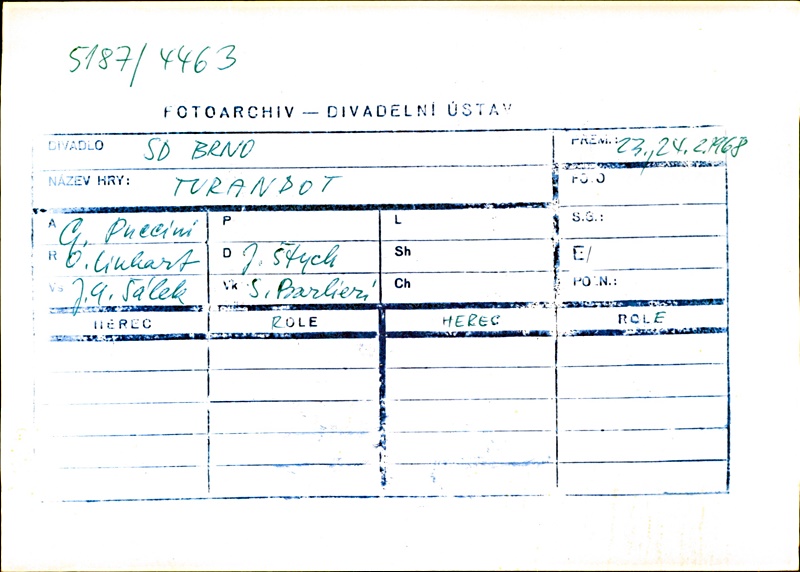 5187/4463
FOTOARCHIV — DIVADELNÍ ÚSTAV
DIVADLO SD BRNO PREM.: 23., 24.2.1968
NÁZEV HRY: TURANDOT FOTO
A G. Puccini P L S.G.:
R O. Linhart D J. Štych Sh E/
Vs J.A. Šálek Vk S. Barlieri Ch POZN.:
HEREC ROLE HEREC ROLE